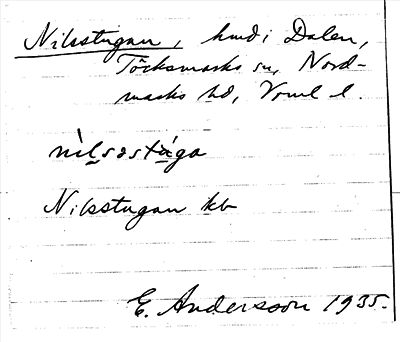 Nilsstugan, hmd i Dalen,
Töcksmarks sn, Nord-
marks hd, Vrml l.
nìlsəstùga
Nilsstugan kb
E. Andersson 1935.